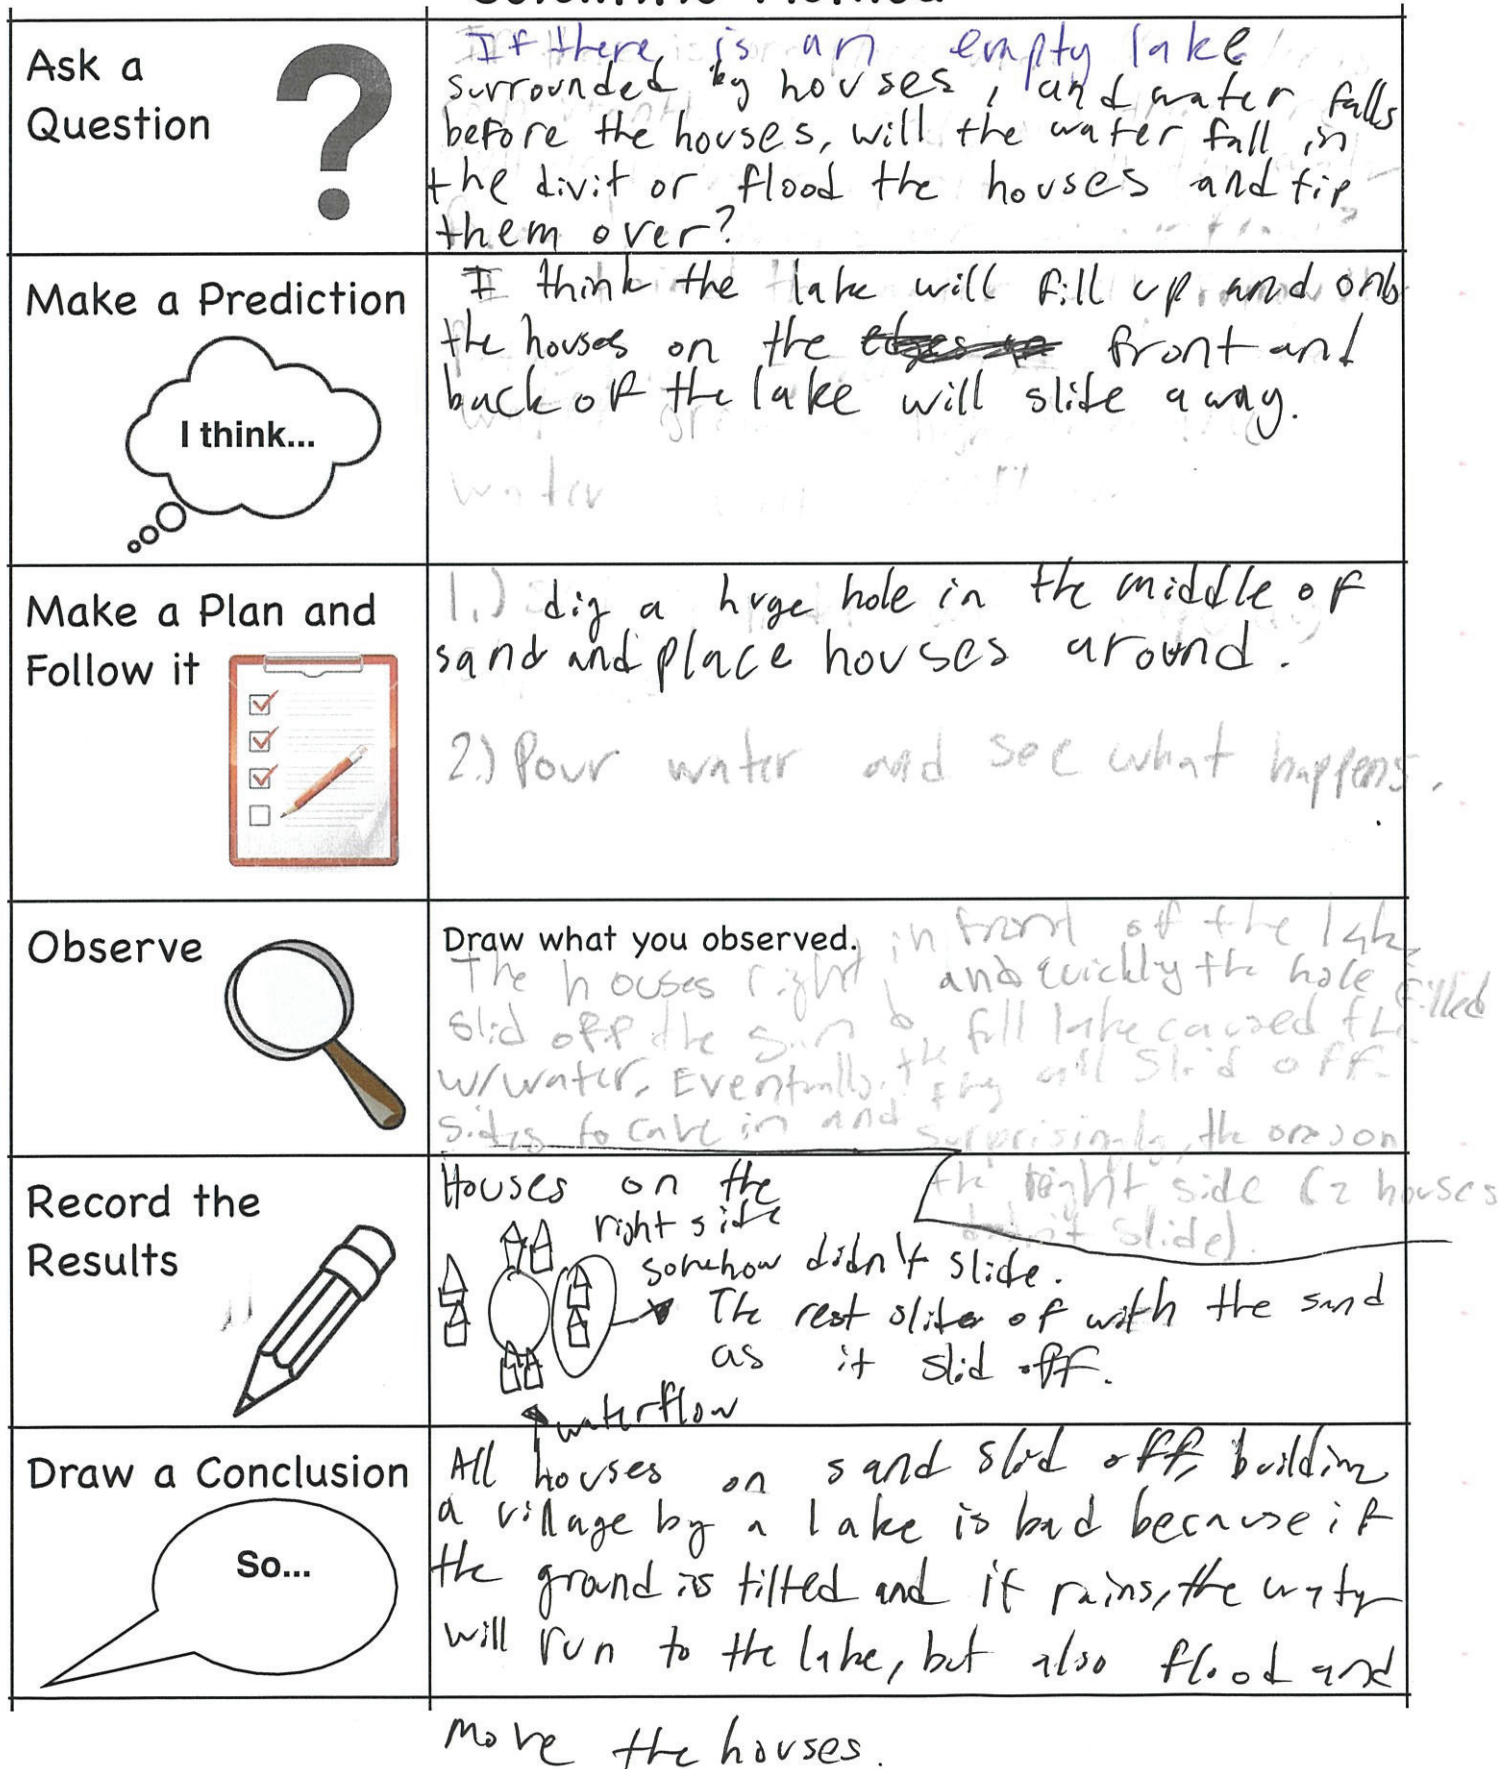 Scientific Method
Ask a
Question
If there is an empty lake
surrounded by houses, and water falls
before the houses, will the water fall in
the divit or flood the houses and tip
them over?
Make a Prediction
I think...
I think the lake will fill up and only
the houses on the front and
back of the lake will slide away.
water
Make a Plan and
Follow it
1.) dig a huge hole in the middle of
sand and place houses around.
2.) Pour water and see what happens.
Observe
Draw what you observed.
in front of the lake
The houses right and quickly the hole filled
slid off the sand full lake caused the
w/water. Eventually, the they all slid off.
sides to cave in and surprisingly, the ones on
the right side (2 houses
didn't slide).
Record the
Results
Houses on the
right side
somehow didn't slide.
The rest slide of with the sand
as it slid off.
waterflow
Draw a Conclusion
So...
All houses on sand slid off, building
a village by a lake is bad because if
the ground is tilted and it rains, the water
will run to the lake, but also flood and
move the houses.